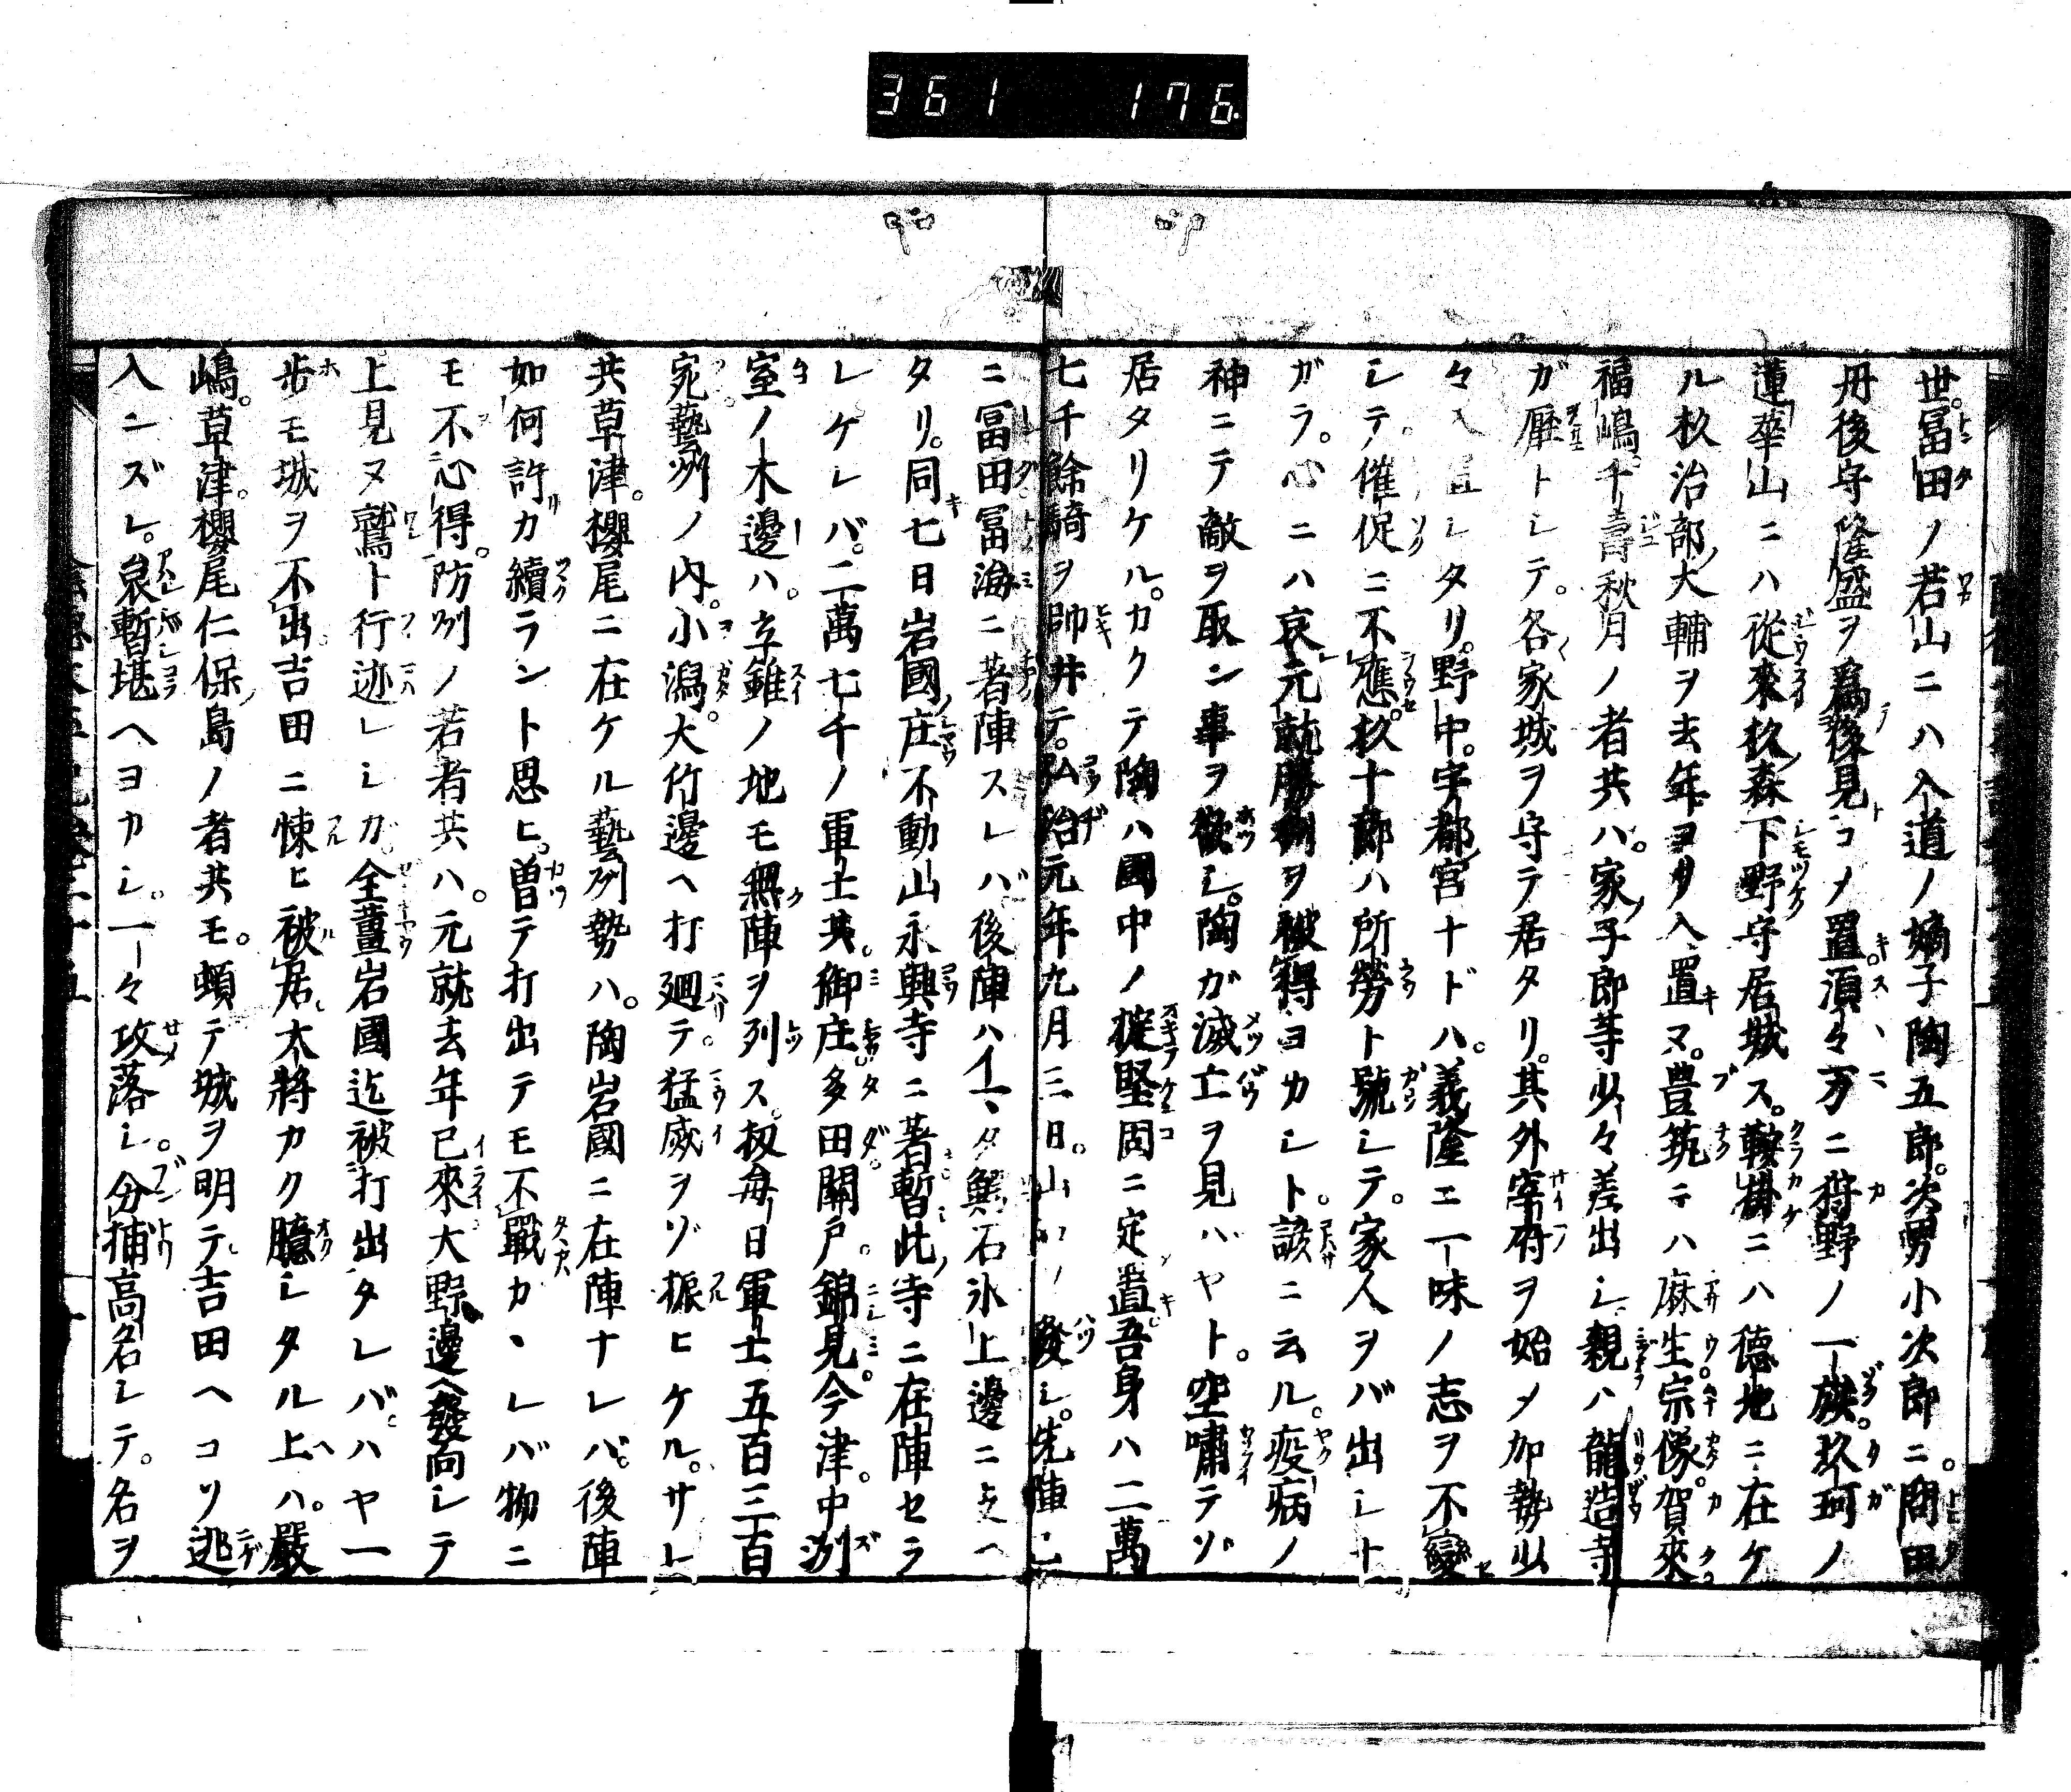 361 176
世。冨田ノ若山ニハ入道ノ嫡子陶五郎。次男小次郎ニ。問田
丹後守隆盛ヲ爲後見コメ置。須々万ニ狩野ノ一族。玖珂ノ
蓮華山ニハ從來杦森下野守居城ス。鞍掛ニハ德地ニ在ケ
ル杦治部大輔ヲ去年ヨリ入置ヌ。豊筑ニハ麻生。宗像。賀來
福嶋。千壽秋月ノ者共ハ。家ノ子郎等少々差出シ。親ハ龍造寺
ガ壓トシテ。各家城ヲ守テ居タリ。其外宰府ヲ始メ加勢少
々入置シタリ。野中。宇都宮ナドハ。義隆エ一味ノ志ヲ不變
シテ。催促ニ不應。杦十郎ハ所勞ト號シテ。家人ヲバ出シナ
ガラ。心ニハ哀元就勝利ヲ被得ヨカシト。諺ニ云ル。疫病ノ
神ニテ敵ヲ取ン事ヲ欲シ。陶ガ滅亡ヲ見バヤト。空嘯テゾ
居タリケル。カクテ陶ハ國中ノ掟堅固ニ定置。吾身ハ二萬
七千餘騎ヲ帥井テ。弘治元年九月三日。山口ノ發シ。先陣已
ニ冨田冨海ニ著陣スレバ後陣ハイマタ鰐石氷上邊ニ支ヘ
タリ。同七日岩國ノ庄不動山永興寺ニ著暫此寺ニ在陣セラ
レケレバ。二萬七千ノ軍士共。御庄。多田。關戸。錦見。今津。中洌
室ノ木邊ハ。立錐ノ地モ無陣ヲ列ス。扨毎日軍士五百三百
宛藝州ノ内。小潟。大竹邊ヘ打廻テ。猛威ヲゾ振ヒケル。サレ
共草津。櫻尾ニ在ケル藝州勢ハ。陶岩國ニ在陣ナレバ。後陣
如何許カ續ラント思ヒ。曽テ打出テモ不戰カヽレバ物ニ
モ不心得。防州ノ若者共ハ。元就去年已來大野邊ヘ發向シテ
上見ヌ鷲ト行迹レシガ。全薑岩國迄被打出タレバ。ハヤ一
歩モ城ヲ不出。吉田ニ悚ヒ被居。大將カク臆シタル上ハ。嚴
嶋。草津。櫻尾仁保島ノ者共モ。頓テ城ヲ明テ。吉田ヘコソ逃
入ンズレ。哀暫堪ヘヨカシ。一々攻落シ。分捕高名シテ。名ヲ